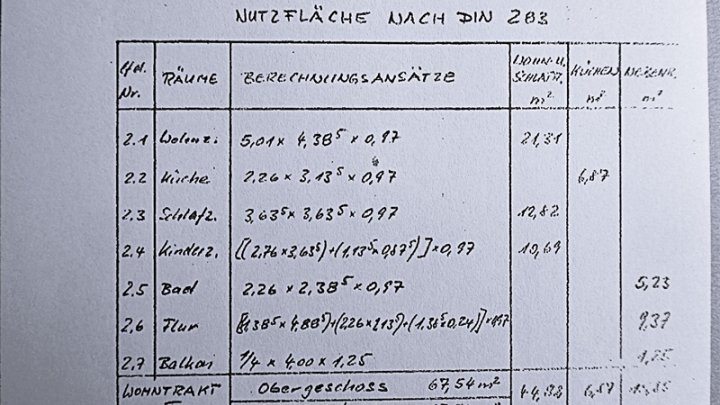 NUTZFLÄCHE NACH DIN 283
lfd. Nr. RÄUME BERECHNUNGSANSÄTZE WOHN-U. SCHLAFR. m² KÜCHEN m² NEBENR. m²
2.1 Wohnz. 5,01 x 4,38⁵ x 0,97 21,31
2.2 Küche 2,26 x 3,13⁵ x 0,97 6,87
2.3 Schlafz. 3,63⁵ x 3,63⁵ x 0,97 12,82
2.4 Kinderz. [(2,76 x 3,63⁵) + (1,13⁵ x 0,87⁵)] x 0,97 10,69
2.5 Bad 2,26 x 2,38⁵ x 0,97 5,23
2.6 Flur 4,88⁵) + (2,26 x 1,13⁵) + (1,38⁵ x 0,24)] x 0,97 9,37
2.7 Balkon 1/4 x 4,00 x 1,25 1,25
WOHNTRAKT Obergeschoss 67,54 m² 6,87